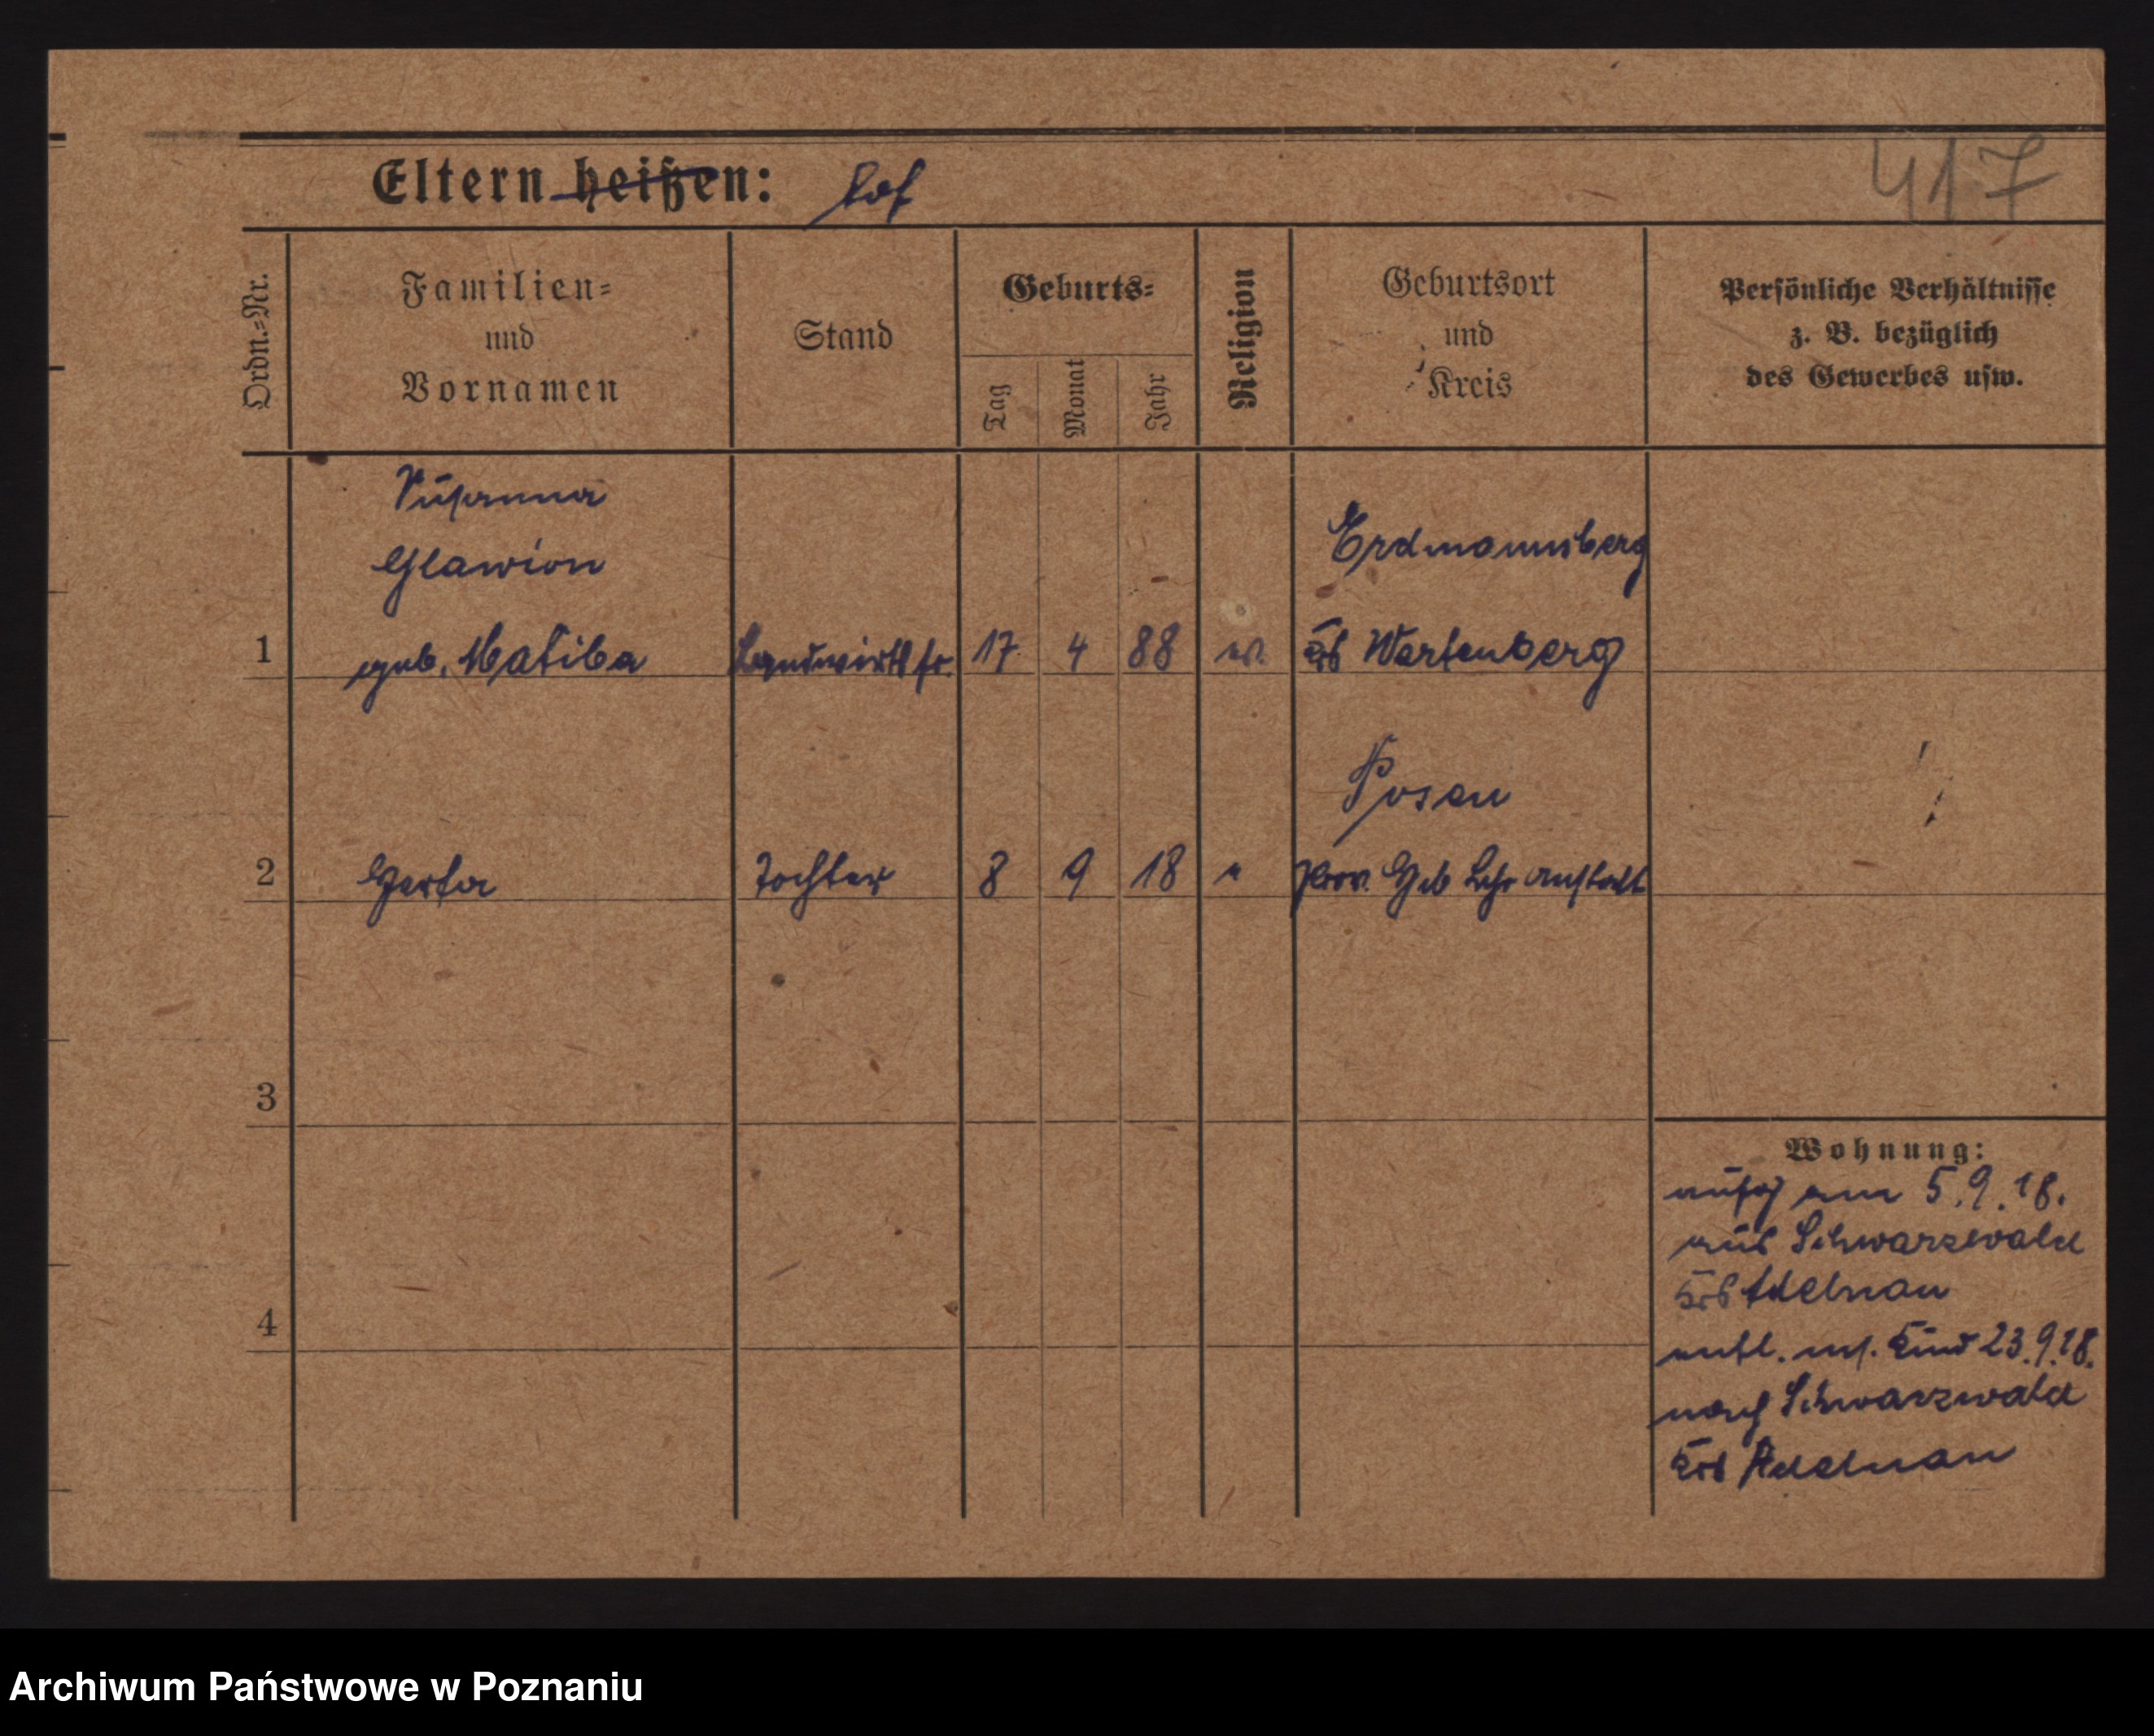 Eltern heißen: tot
417
Ordn.=Nr.
Familien=
und
Vornamen
Stand
Geburts=
Tag
Monat
Jahr
Religion
Geburtsort
und
Kreis
Persönliche Verhältnisse
z. B. bezüglich
des Gewerbes usw.
Susanna
Glawion
Erdmannsberg
1 geb. Matiba Landwirtsfr. 17 4 88 ev. Krs Wartenberg
Posen
2 Gerta Tochter 8 9 18 " Prov. Geb Lehr anstalt
3
4
Wohnung:
aufg am 5.9.18.
aus Schwarzwald
Krs Adelnau
entl. m. Kind 23.9.18.
nach Schwarzwald
Krs Adelnau
Archiwum Państwowe w Poznaniu